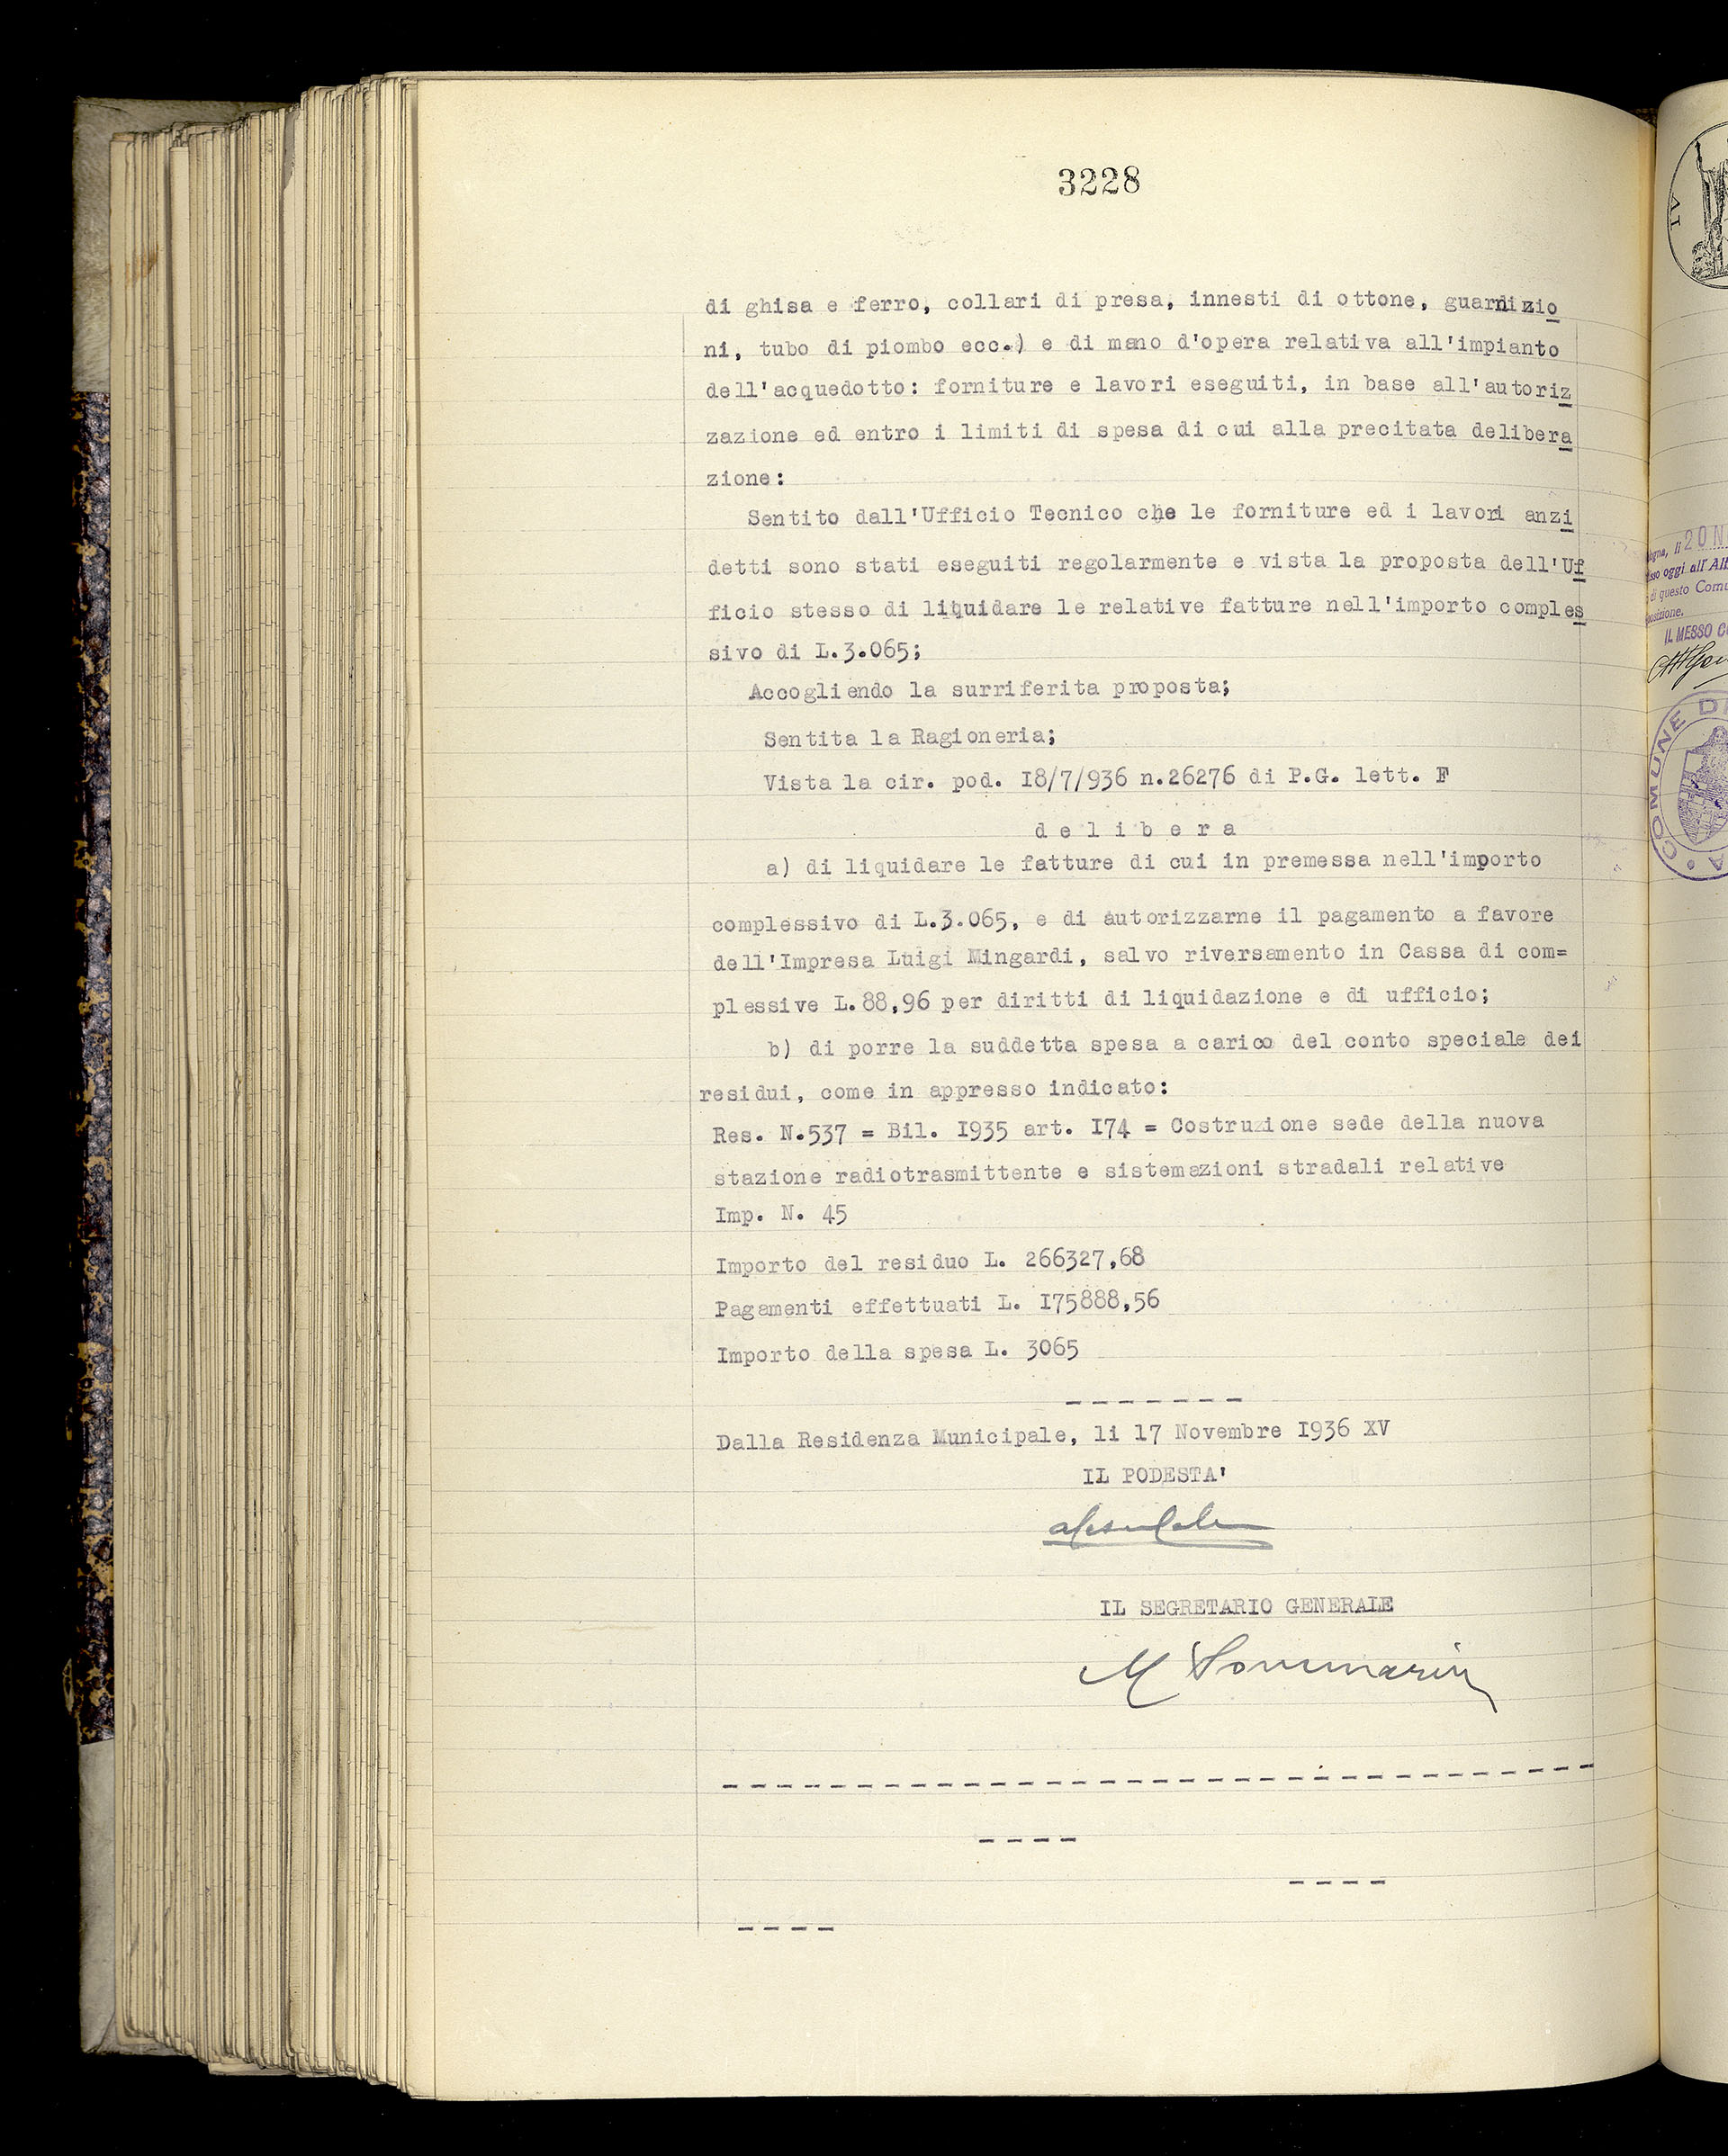 3228
di ghisa e ferro, collari di presa, innesti di ottone, guarnizio
ni, tubo di piombo ecc.) e di mano d'opera relativa all'impianto
dell'acquedotto: forniture e lavori eseguiti, in base all'autoriz
zazione ed entro i limiti di spesa di cui alla precitata delibera
zione:
Sentito dall'Ufficio Tecnico che le forniture ed i lavori anzi
detti sono stati eseguiti regolarmente e vista la proposta dell'Uf
ficio stesso di liquidare le relative fatture nell'importo comples
sivo di L.3.065;
Accogliendo la surriferita proposta;
Sentita la Ragioneria;
Vista la cir. pod. I8/7/936 n.26276 di P.G. lett. F
d e l i b e r a
a) di liquidare le fatture di cui in premessa nell'importo
complessivo di L.3.065, e di autorizzarne il pagamento a favore
dell'Impresa Luigi Mingardi, salvo riversamento in Cassa di com=
plessive L.88,96 per diritti di liquidazione e di ufficio;
b) di porre la suddetta spesa a carico del conto speciale dei
residui, come in appresso indicato:
Res. N.537 = Bil. I935 art. I74 = Costruzione sede della nuova
stazione radiotrasmittente e sistemazioni stradali relative
Imp. N. 45
Importo del residuo L. 266327,68
Pagamenti effettuati L. I75888,56
Importo della spesa L. 3065
-------
Dalla Residenza Municipale, li 17 Novembre I936 XV
IL PODESTA'
IL SEGRETARIO GENERALE
M Sommarin
AI
li 20 N
oggi all'Alb
di questo Comu
IL MESSO CO
COMUNE DI
A